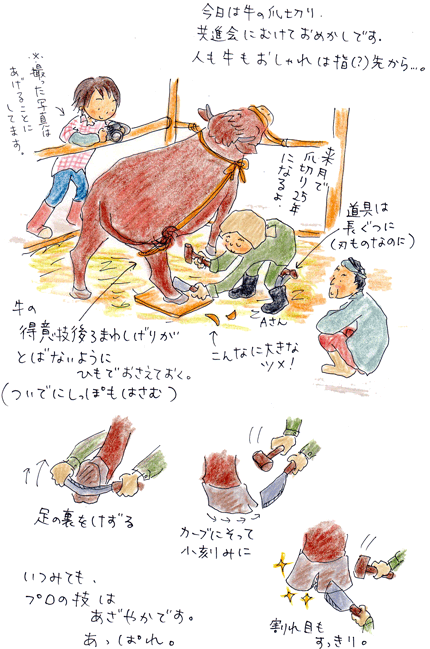 今日は牛の爪切り.
共進会にむけておめかしです。
人も牛もおしゃれは指(?)先から…。
※撮った写真は
あげることに
してます。
来月で
爪切り25年
になるよ
道具は
長ぐつに
(刃ものなのに)
Aさん
こんなに大きな
ツメ!
牛の
得意技後ろまわしげりが
とばないように
ひもでおさえておく。
(ついでにしっぽもはさむ)
足の裏をけずる
カーブにそって
小刻みに
割れ目も
すっきり。
いつみても、
プロの技は
あざやかです。
あっぱれ。